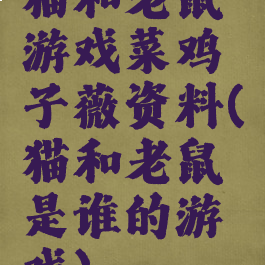 猫和老鼠
游戏菜鸡
子薇资料(
猫和老鼠
是谁的游
戏)